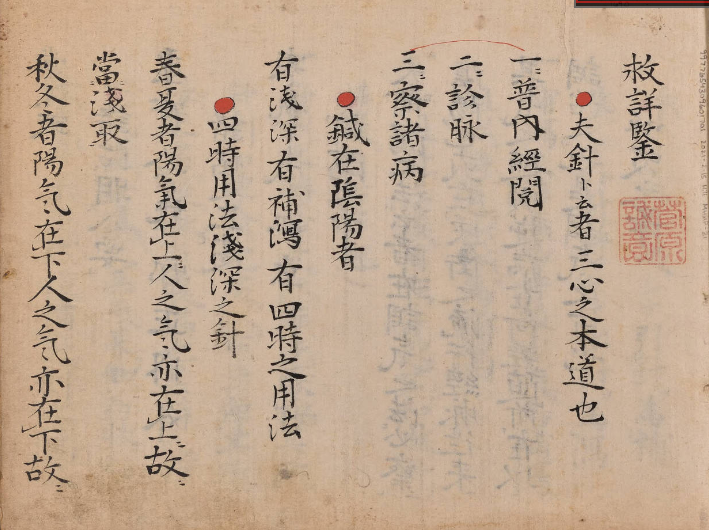 救詳鑒
夫針ト云者三心之本道也
一ニ普内經閲
二ニ診脉
三ニ察諸病
鍼在陰陽者
有浅深有補瀉有四時之用法
四時用法淺深之針
春夏者陽氣在上人之气亦在上故ニ
當淺取
秋冬者陽气在下人之气亦在下故ニ
菅原
誠意